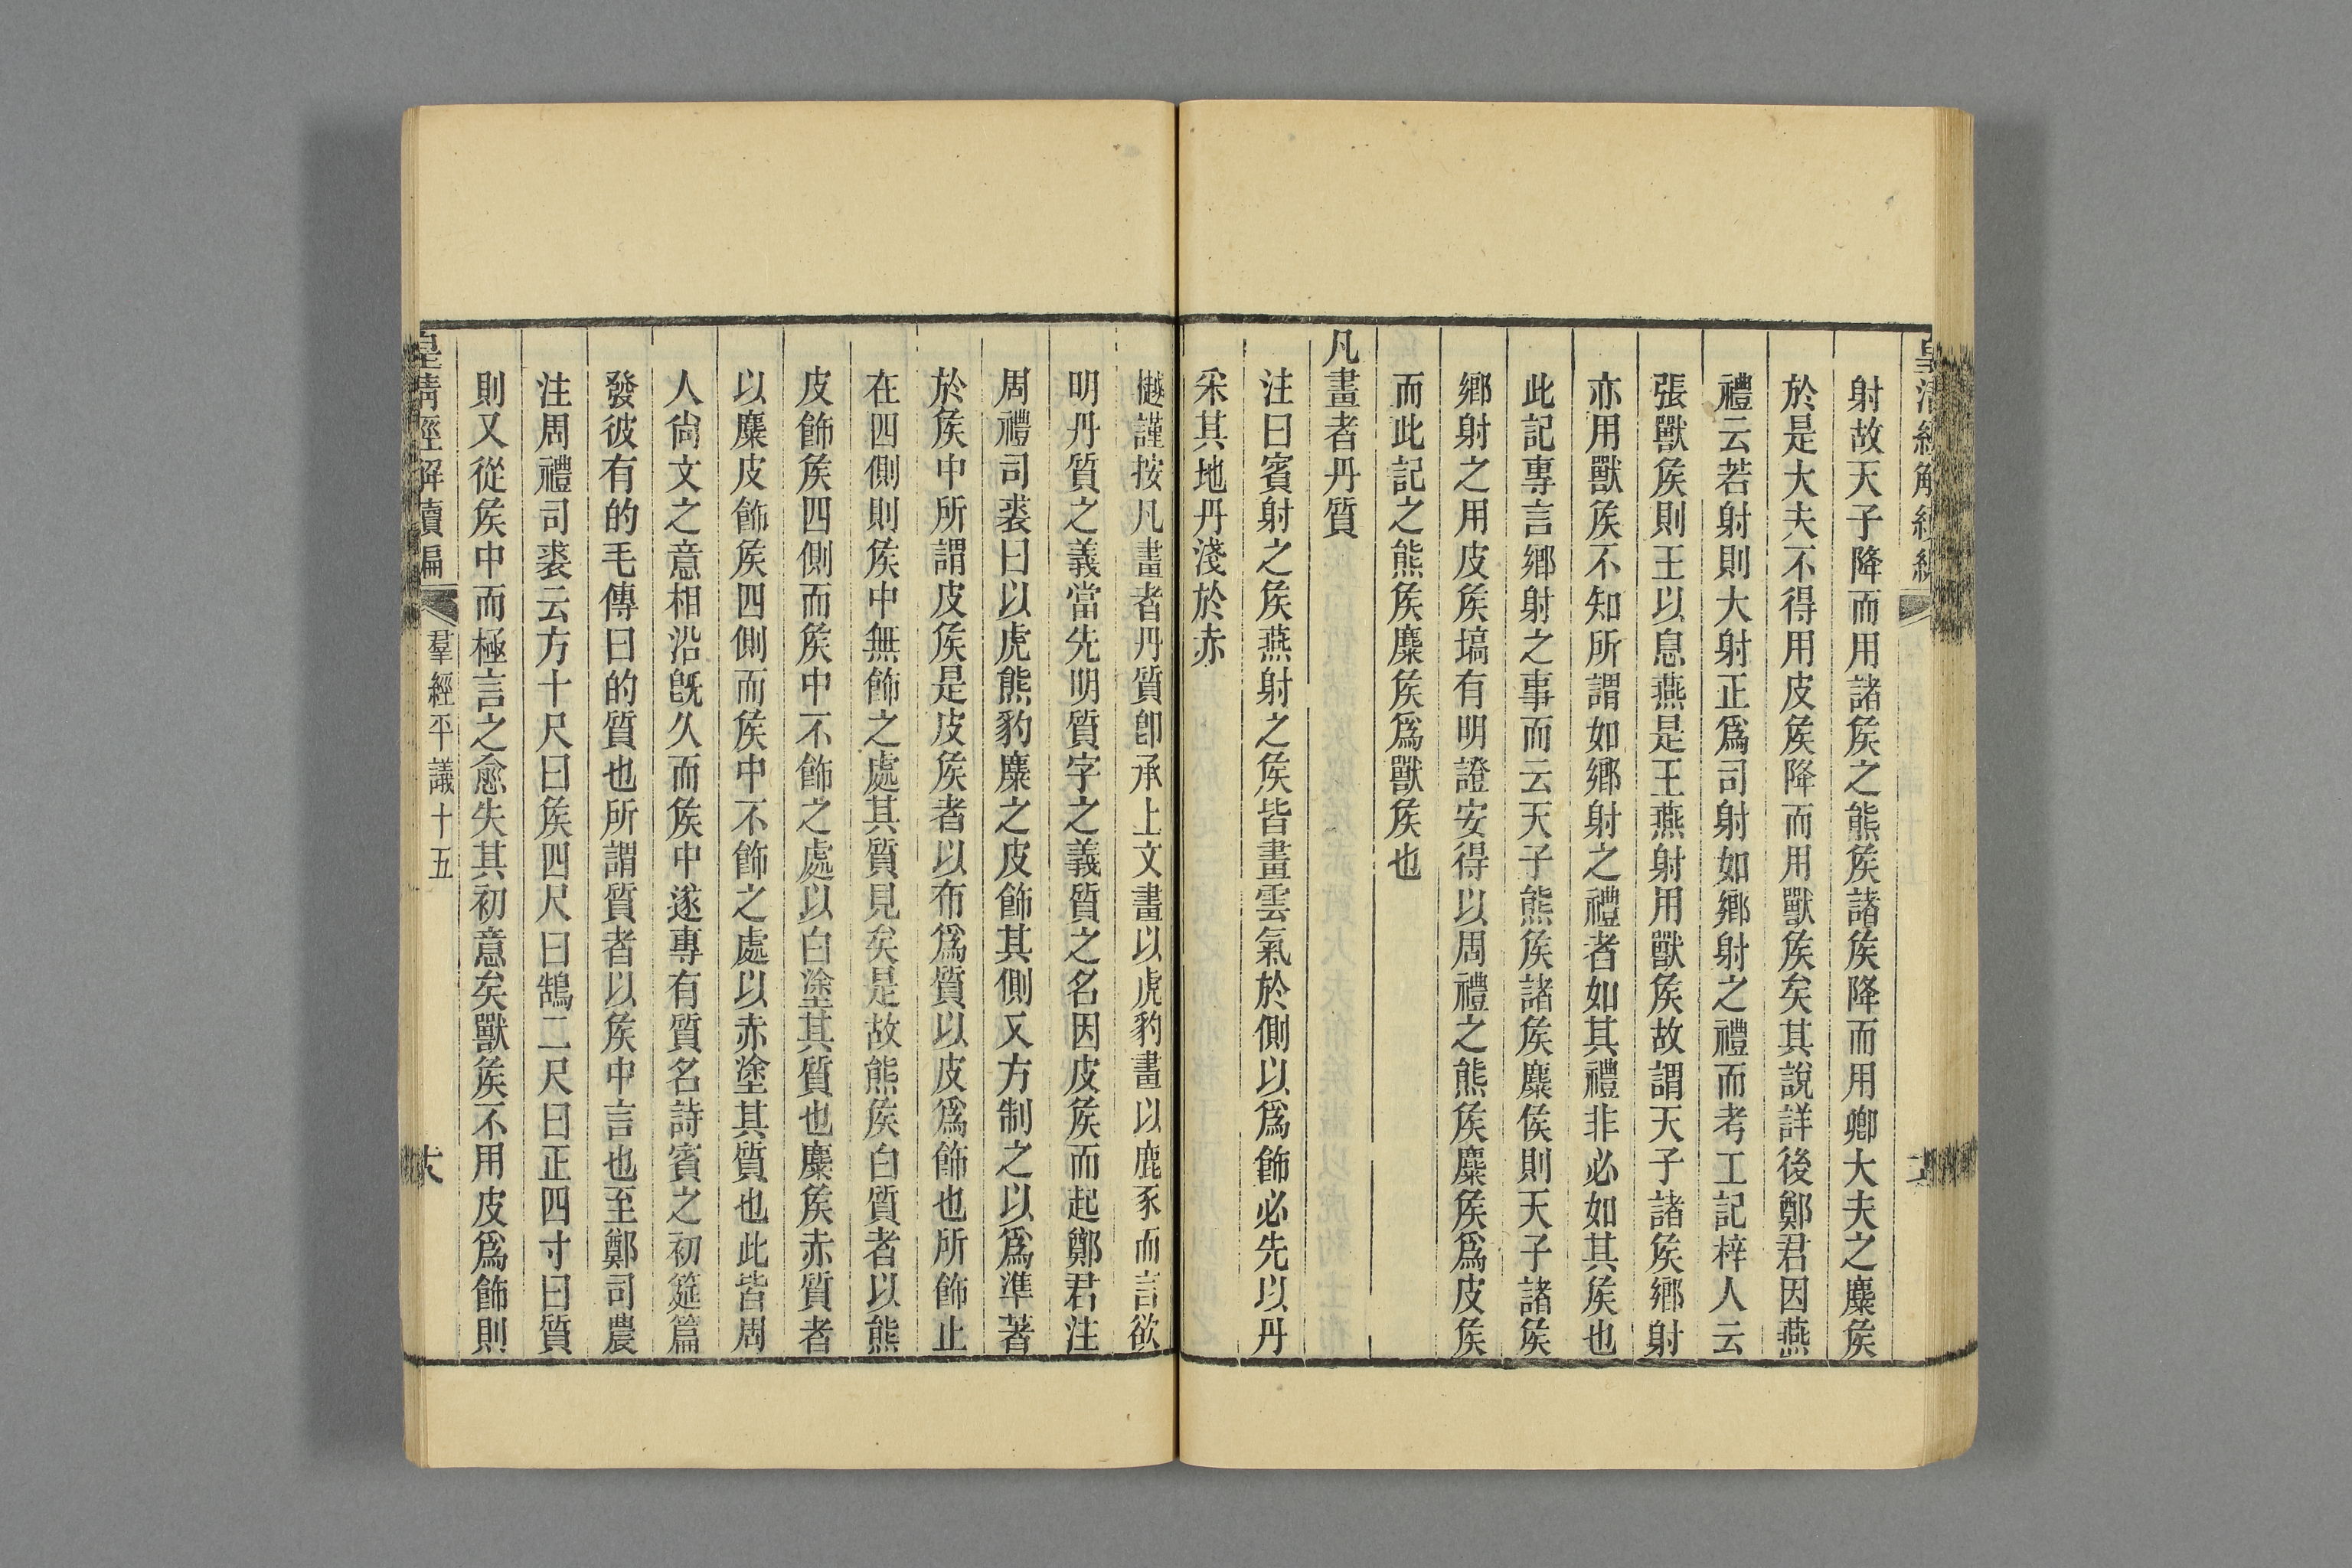 射故天子降而用諸矦之熊矦諸矦降而用卿大夫之麋矦
於是大夫不得用皮矦降而用獸矦矣其說詳後鄭君因燕
禮云若射則大射正爲司射如鄉射之禮而考工記梓人云
張獸矦則王以息燕是王燕射用獸矦故謂天子諸矦鄉射
亦用獸矦不知所謂如鄉射之禮者如其禮非必如其矦也
此記專言鄉射之事而云天子熊矦諸矦麋侯則天子諸矦
鄉射之用皮矦塙有明證安得以周禮之熊矦麋矦爲皮矦
而此記之熊矦麋矦爲獸矦也
凡畫者丹質
注曰賓射之矦燕射之矦皆畫雲氣於側以爲飾必先以丹
采其地丹淺於赤
樾謹按凡畫者丹質卽承上文畫以虎豹畫以鹿豕而言欲
明丹質之義當先明質字之義質之名因皮矦而起鄭君注
周禮司裘曰以虎熊豹麋之皮飾其側又方制之以爲準著
於矦中所謂皮矦是皮矦者以布爲質以皮爲飾也所飾止
在四側則矦中無飾之處其質見矣是故熊矦白質者以熊
皮飾矦四側而矦中不飾之處以白塗其質也麋矦赤質者
以麋皮飾矦四側而矦中不飾之處以赤塗其質也此皆周
人尙文之意相沿旣久而矦中遂專有質名詩賓之初筵篇
發彼有的毛傳曰的質也所謂質者以矦中言也至鄭司農
注周禮司裘云方十尺曰矦四尺曰鵠二尺曰正四寸曰質
則又從矦中而極言之愈失其初意矣獸矦不用皮爲飾則
皇淸經解續編 羣經平議十五